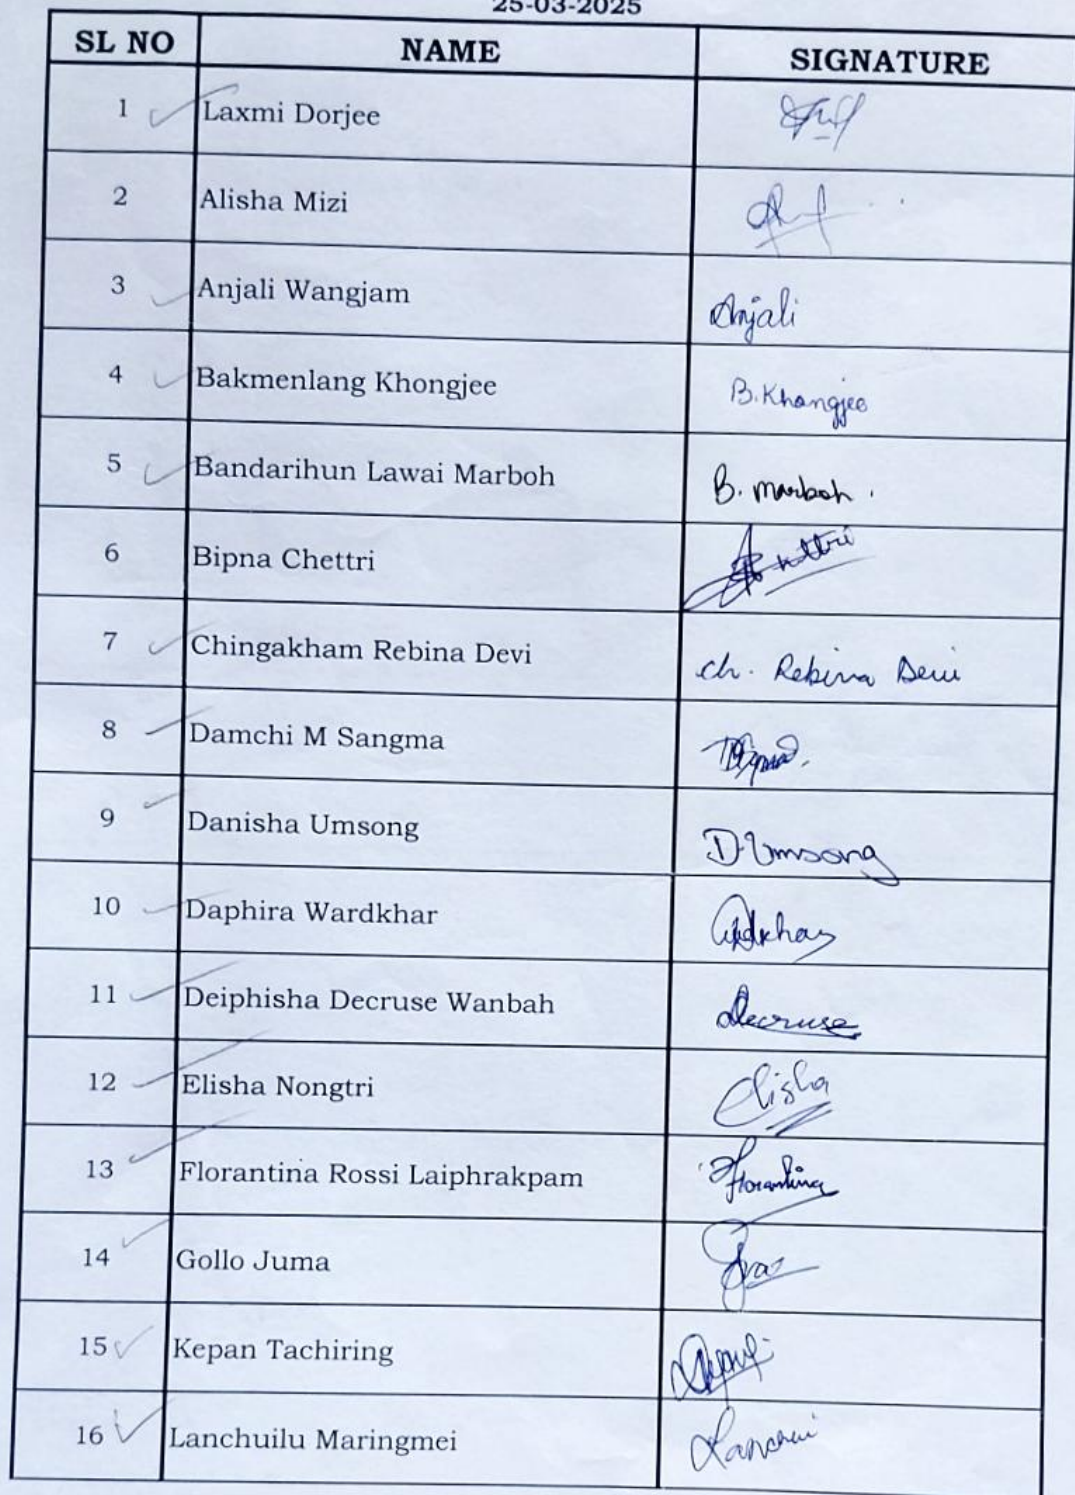 25-03-2025
SL NO NAME SIGNATURE
1 Laxmi Dorjee
2 Alisha Mizi
3 Anjali Wangjam Anjali
4 Bakmenlang Khongjee B.Khongjee
5 Bandarihun Lawai Marboh B. Marboh.
6 Bipna Chettri
7 Chingakham Rebina Devi Ch. Rebina Devi
8 Damchi M Sangma
9 Danisha Umsong D Umsong
10 Daphira Wardkhar
11 Deiphisha Decruse Wanbah Decruse
12 Elisha Nongtri Elisha
13 Florantina Rossi Laiphrakpam Florantina
14 Gollo Juma
15 Kepan Tachiring
16 Lanchuilu Maringmei